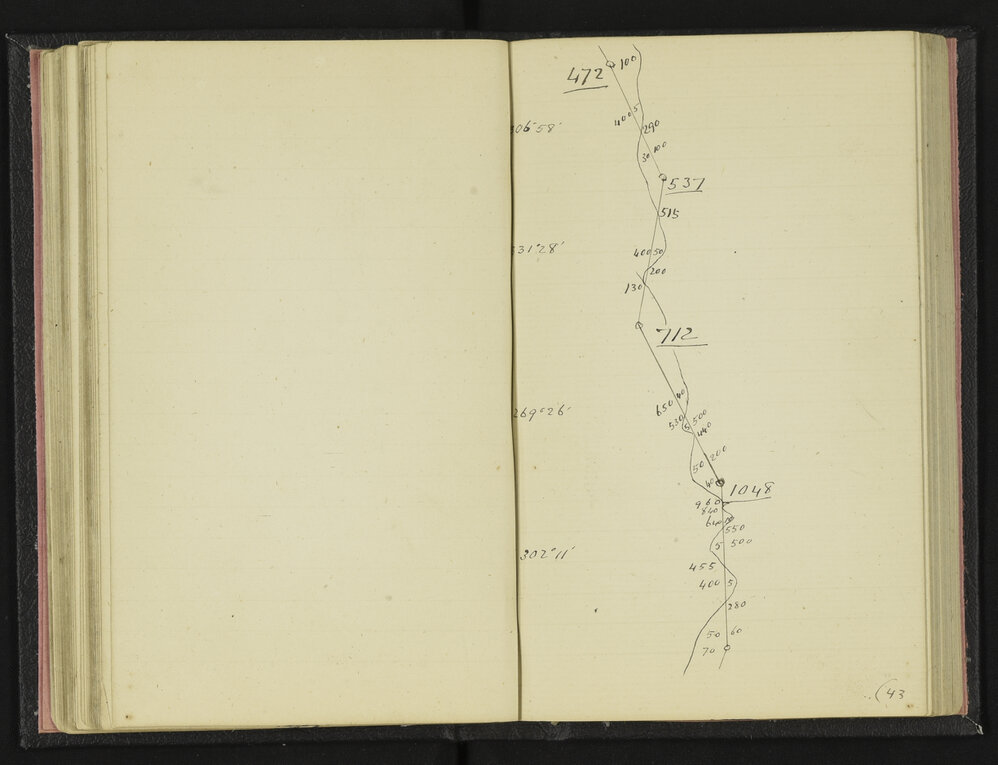 100
472
5
400
06°58'
290
30 100
537
515
31°28'
400 50
200
130
712
40
650
269°26'
530 5 500
440
200
50
40
1048
960
840
640
550
5 500
302°11'
455
400 5
280
50 60
70
(43